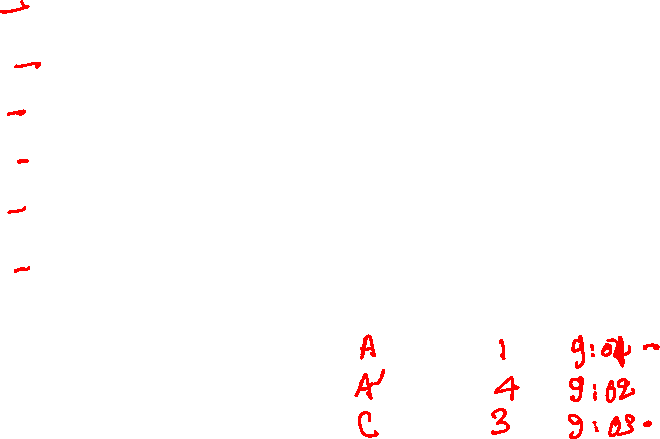 A 1 9:01 -
A' 4 9:02
C 3 9:03.